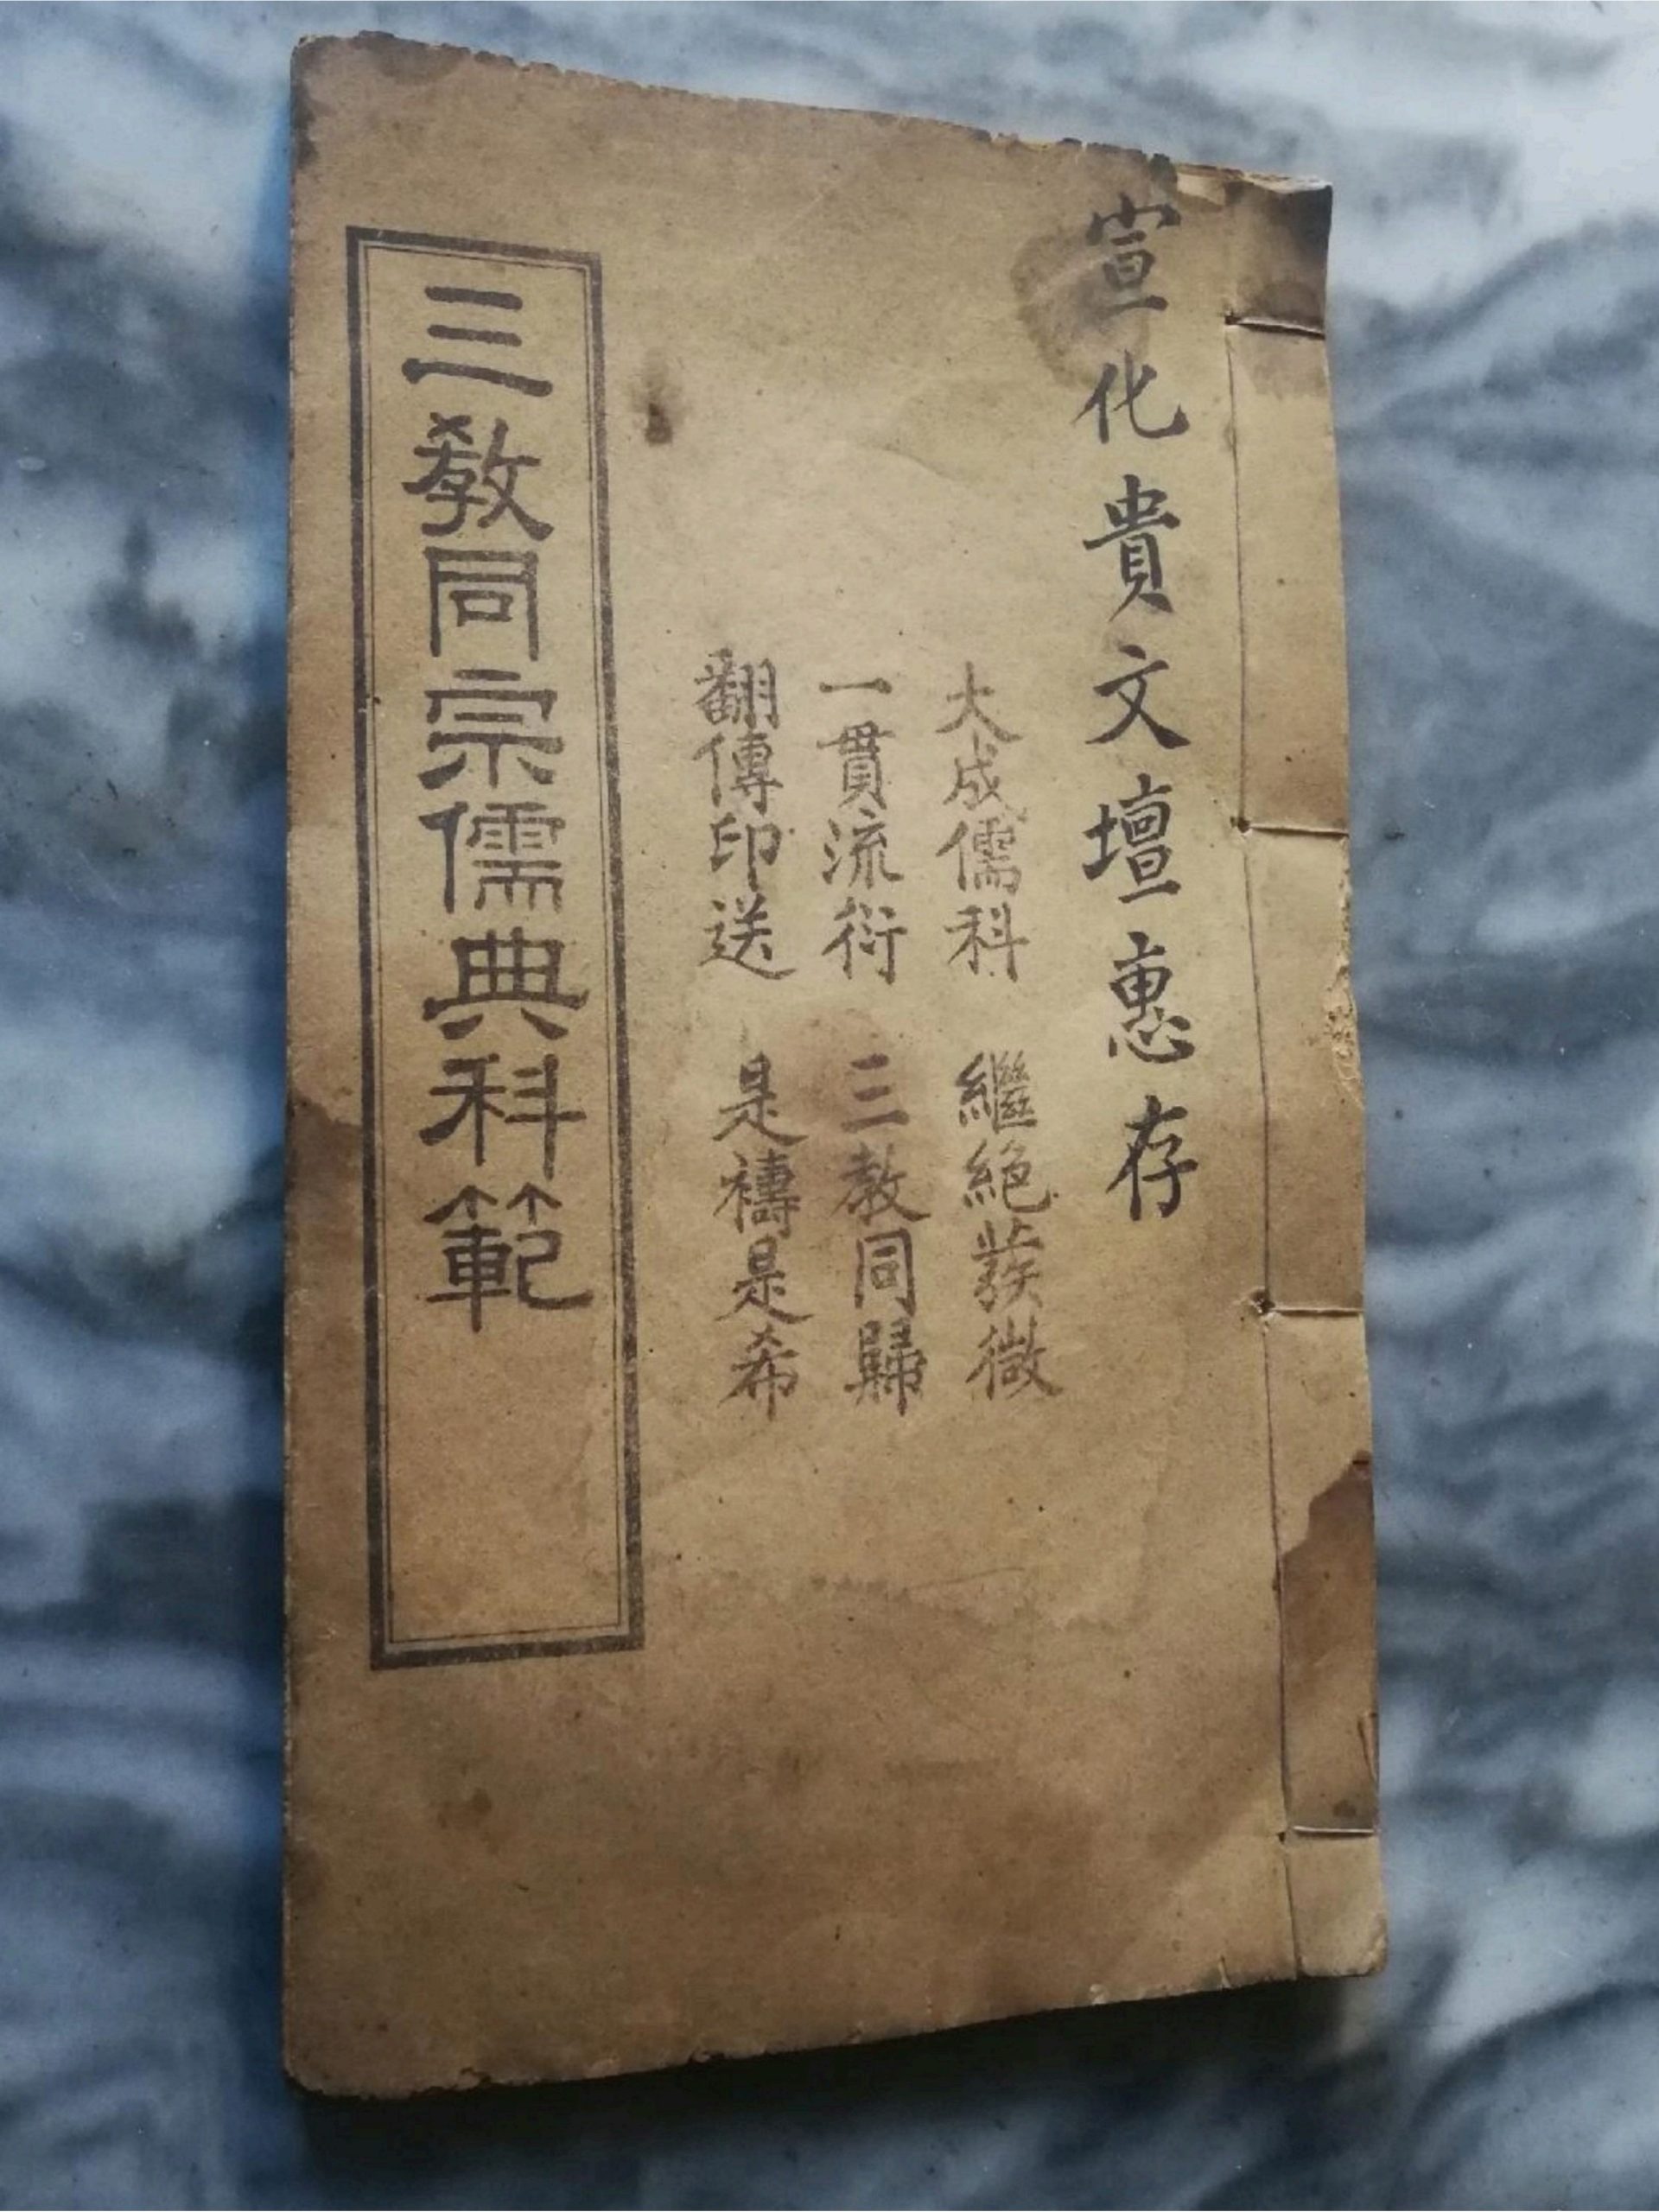 宣化貴文壇惠存
大成儒科 繼絕蔟微
一貫流衍 三教同歸
翻傳印送 是禱是希
三教同宗儒典科範